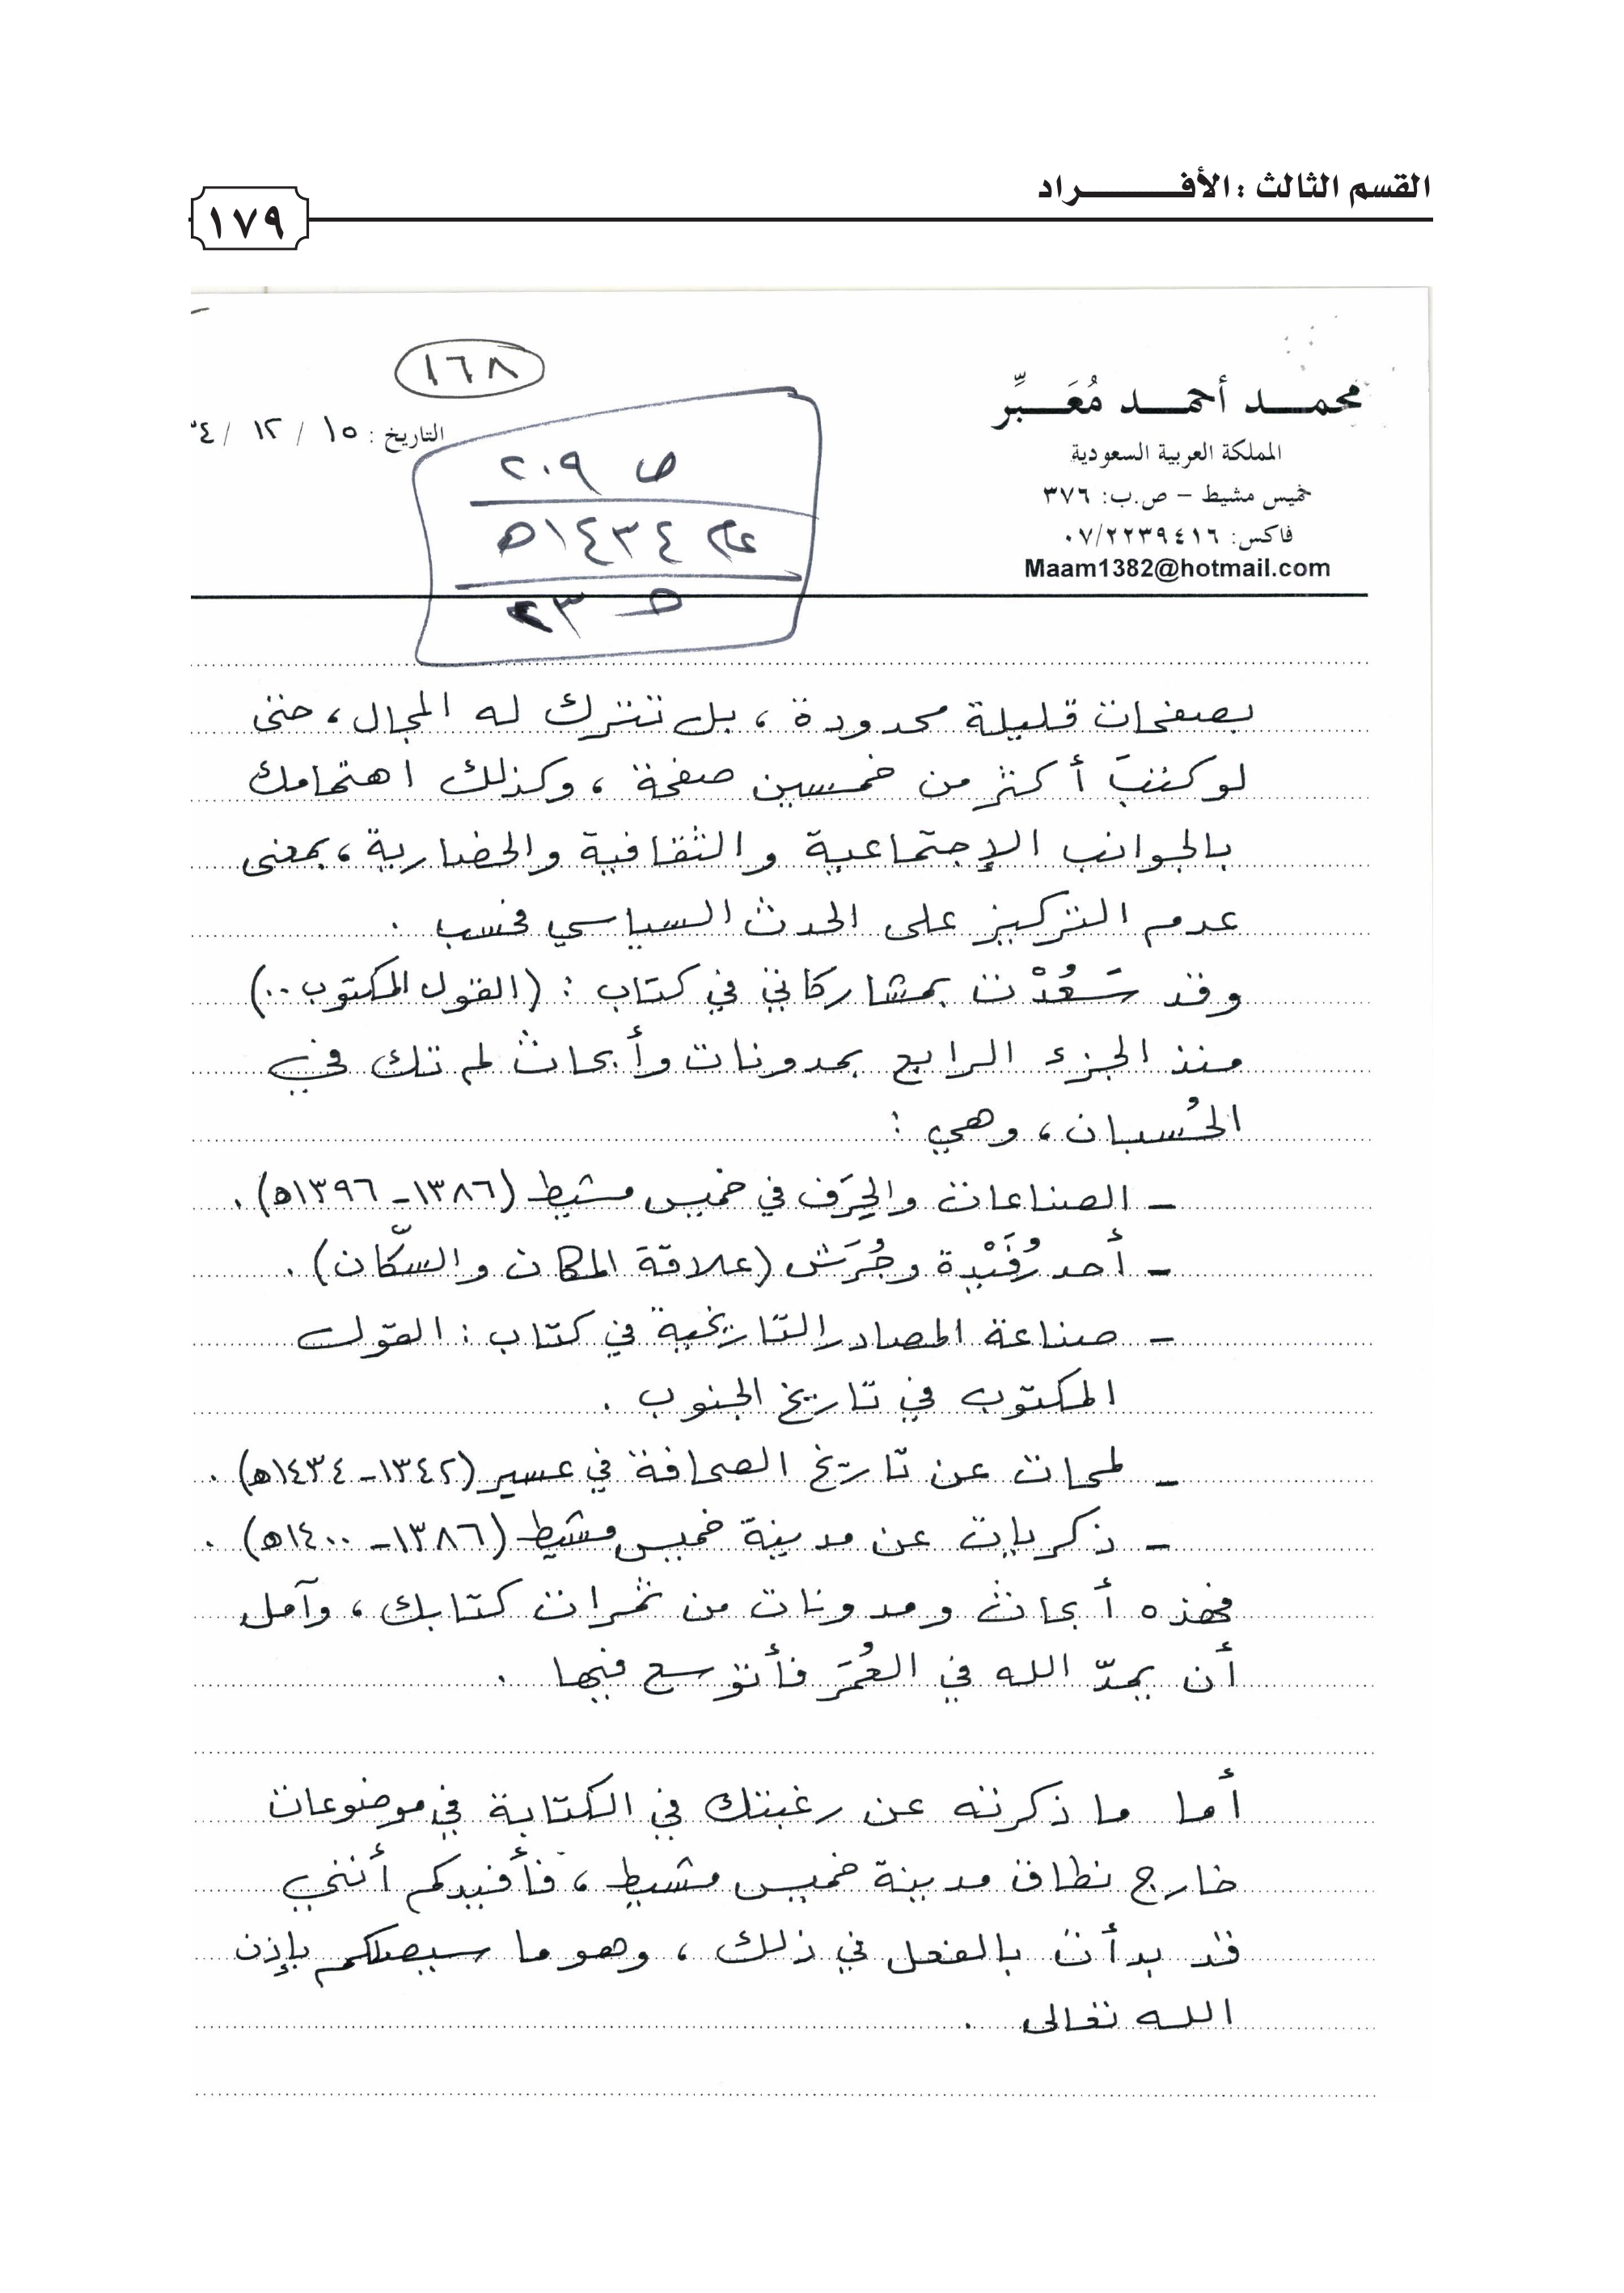 القسم الثالث : الأفـــــــــراد
١٧٩
١٦٨
محمـــد أحمـــد مُعَـــبِّر
المملكة العربية السعودية
خميس مشيط – ص.ب: ٣٧٦
فاكس: ٠٧/٢٢٣٩٤١٦
Maam1382@hotmail.com
التاريخ : ١٥ / ١٢ / ٣٤
ص ٢٠٩
عام ١٤٣٤هـ
بصفحات قليلة محدودة ، بل تترك له المجال ، حتى
لو كتبَ أكثر من خمسين صفحة ، وكذلك اهتمامك
بالجوانب الإجتماعية والثقافية والحضارية ، بمعنى
عدم التركيز على الحدث السياسي فحسب .
وقد سَعُدْت بمشاركاتي في كتاب : (القول المكتوب ..)
منذ الجزء الرابع بمدونات وأبحاث لم تك في
الحُسبان ، وهي :
– الصناعات والحِرَف في خميس مشيط (١٣٨٦ – ١٣٩٦ه) .
– أحد رُفَيْدة وجُرَش (علاقة المكان والسكّان) .
– صناعة المصادر التاريخية في كتاب : القول
المكتوب في تاريخ الجنوب .
– لمحات عن تاريخ الصحافة في عسير (١٣٤٢ – ١٤٣٤ه) .
– ذكريات عن مدينة خميس مشيط (١٣٨٦ – ١٤٠٠ه) .
فهذه أبحاث ومدونات من ثمرات كتابك ، وآمل
أن يمدّ الله في العُمَر فأتوسع فيها .
أما ما ذكرته عن رغبتك في الكتابة في موضوعات
خارج نطاق مدينة خميس مشيط ، فأفيدكم أنني
قد بدأت بالفعل في ذلك ، وهو ما سيصلكم بإذن
الله تعالى .